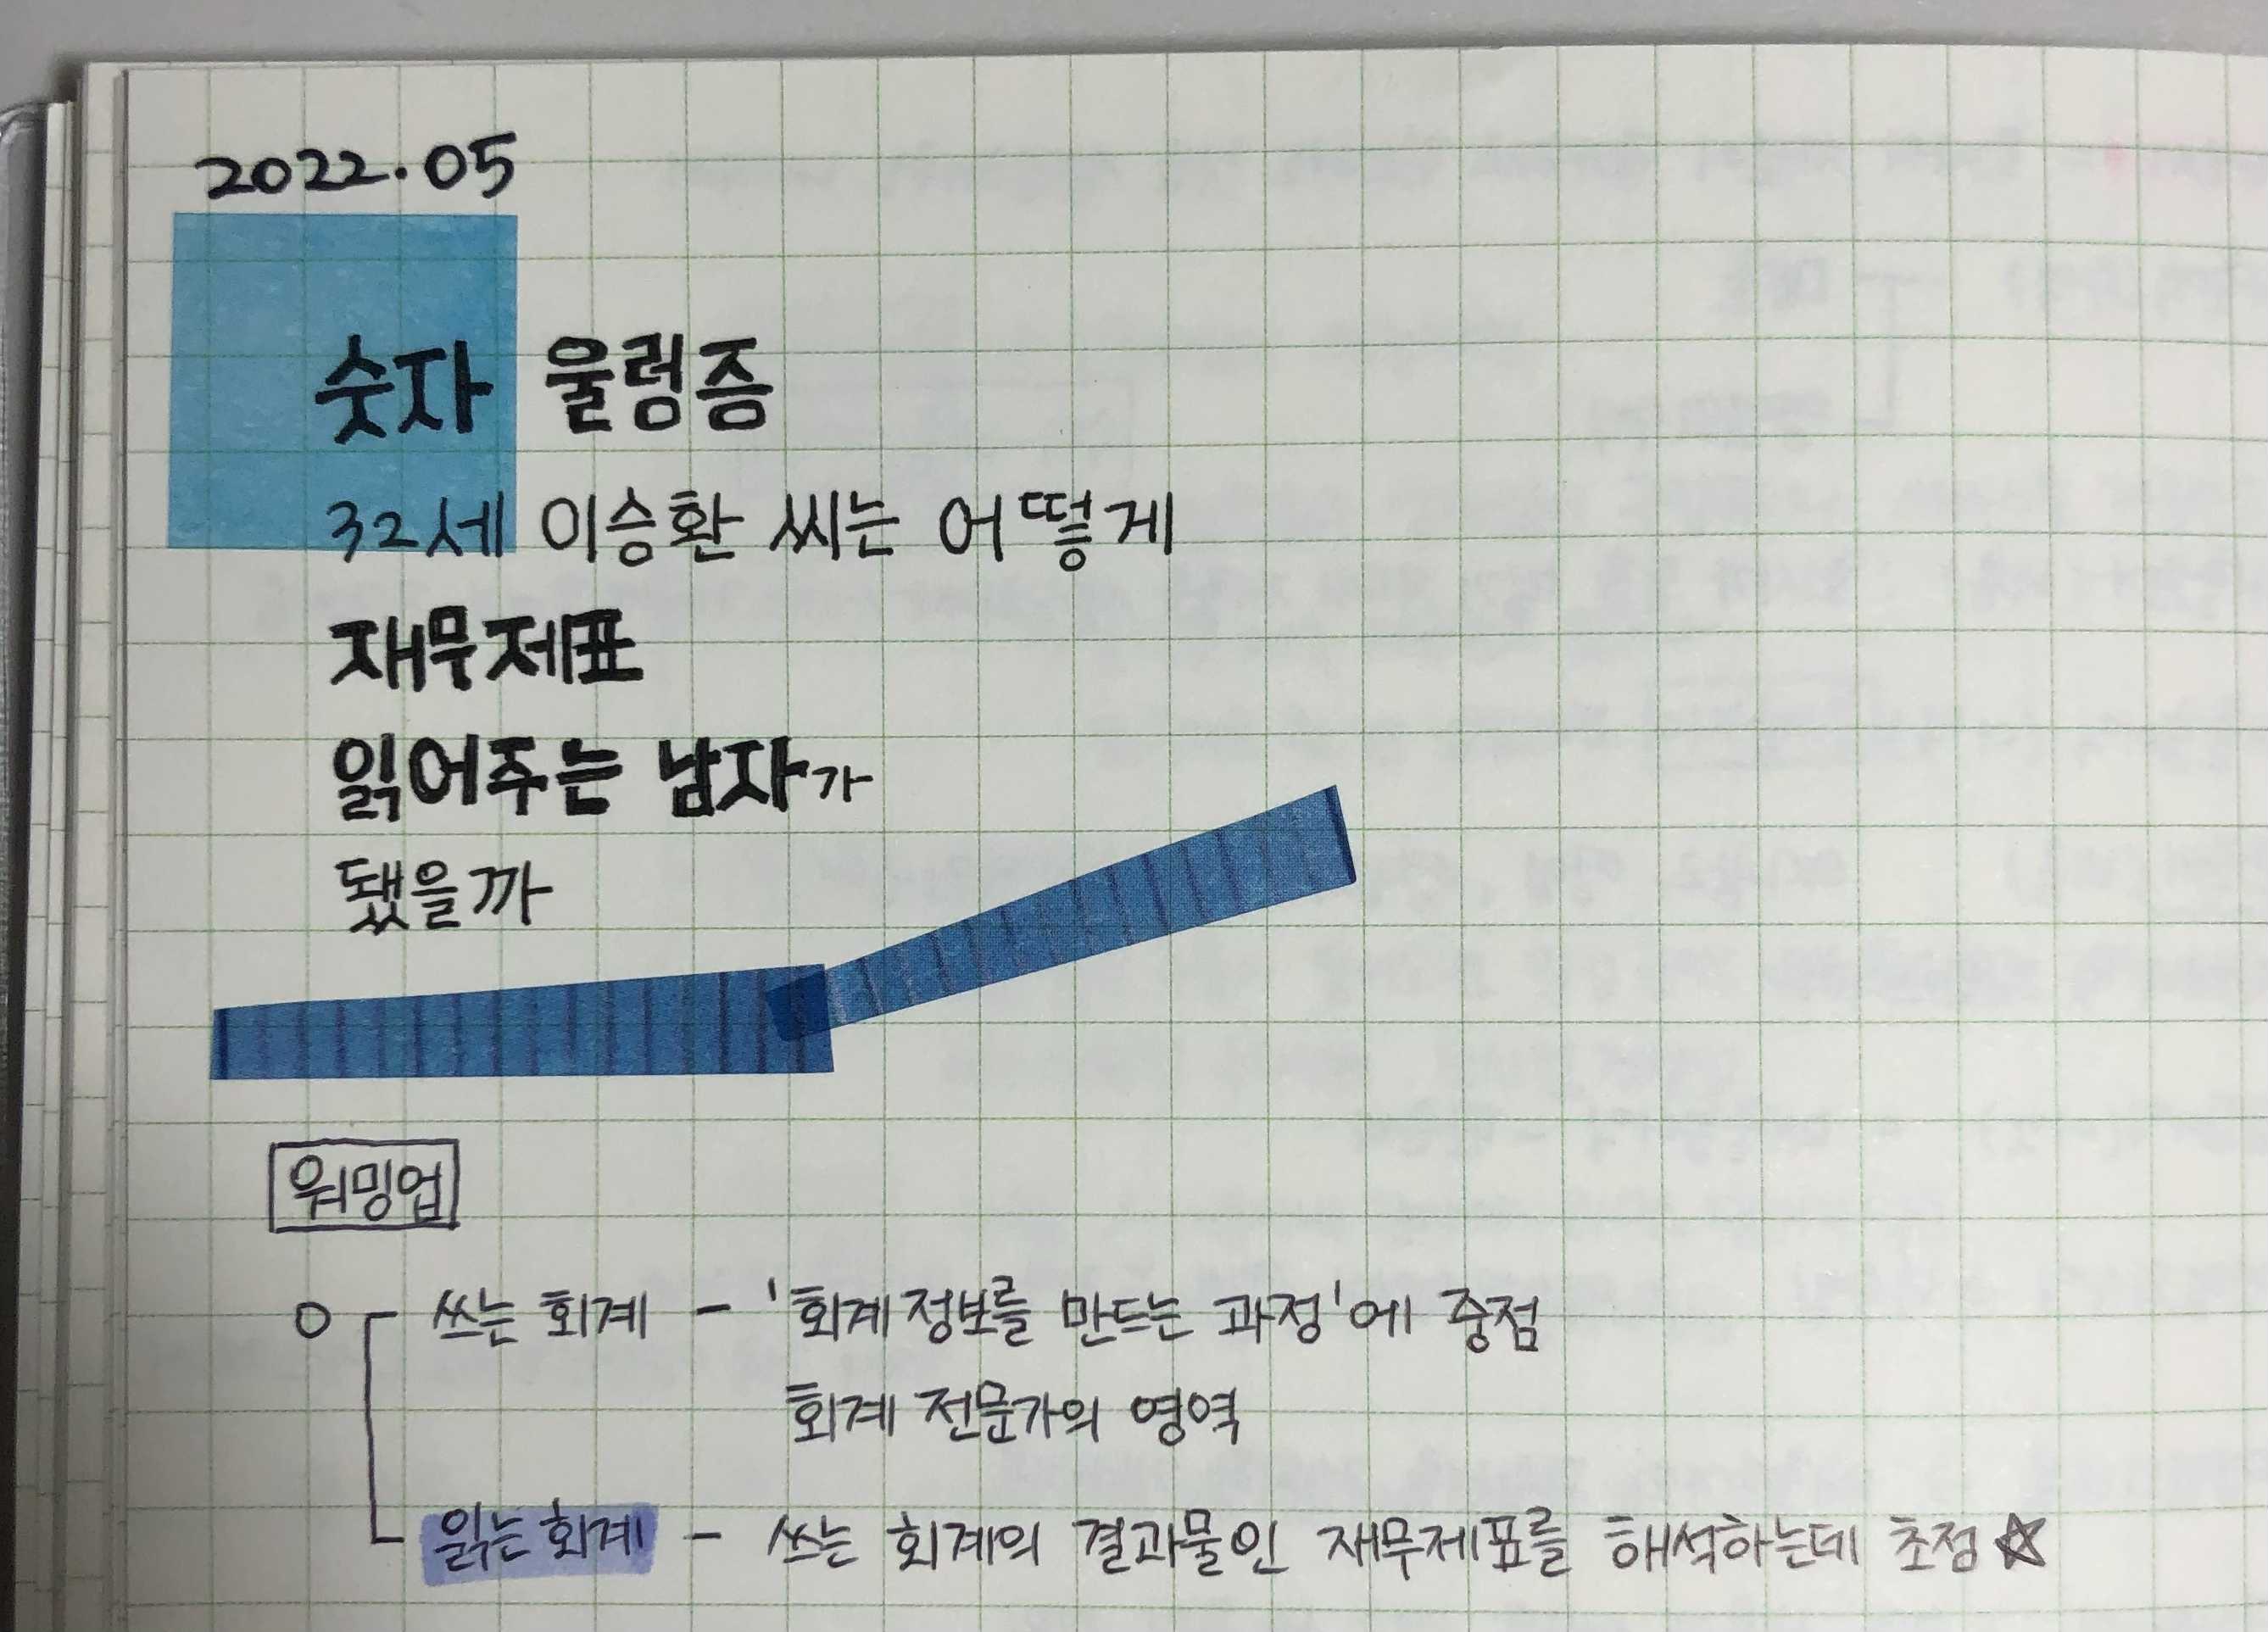 2022.05
숫자 울렁증
32세 이승환 씨는 어떻게
재무제표
읽어주는 남자가
됐을까
워밍업
쓰는 회계 - '회계 정보를 만드는 과정'에 중점
회계 전문가의 영역
읽는 회계 - 쓰는 회계의 결과물인 재무제표를 해석하는데 초점 ☆